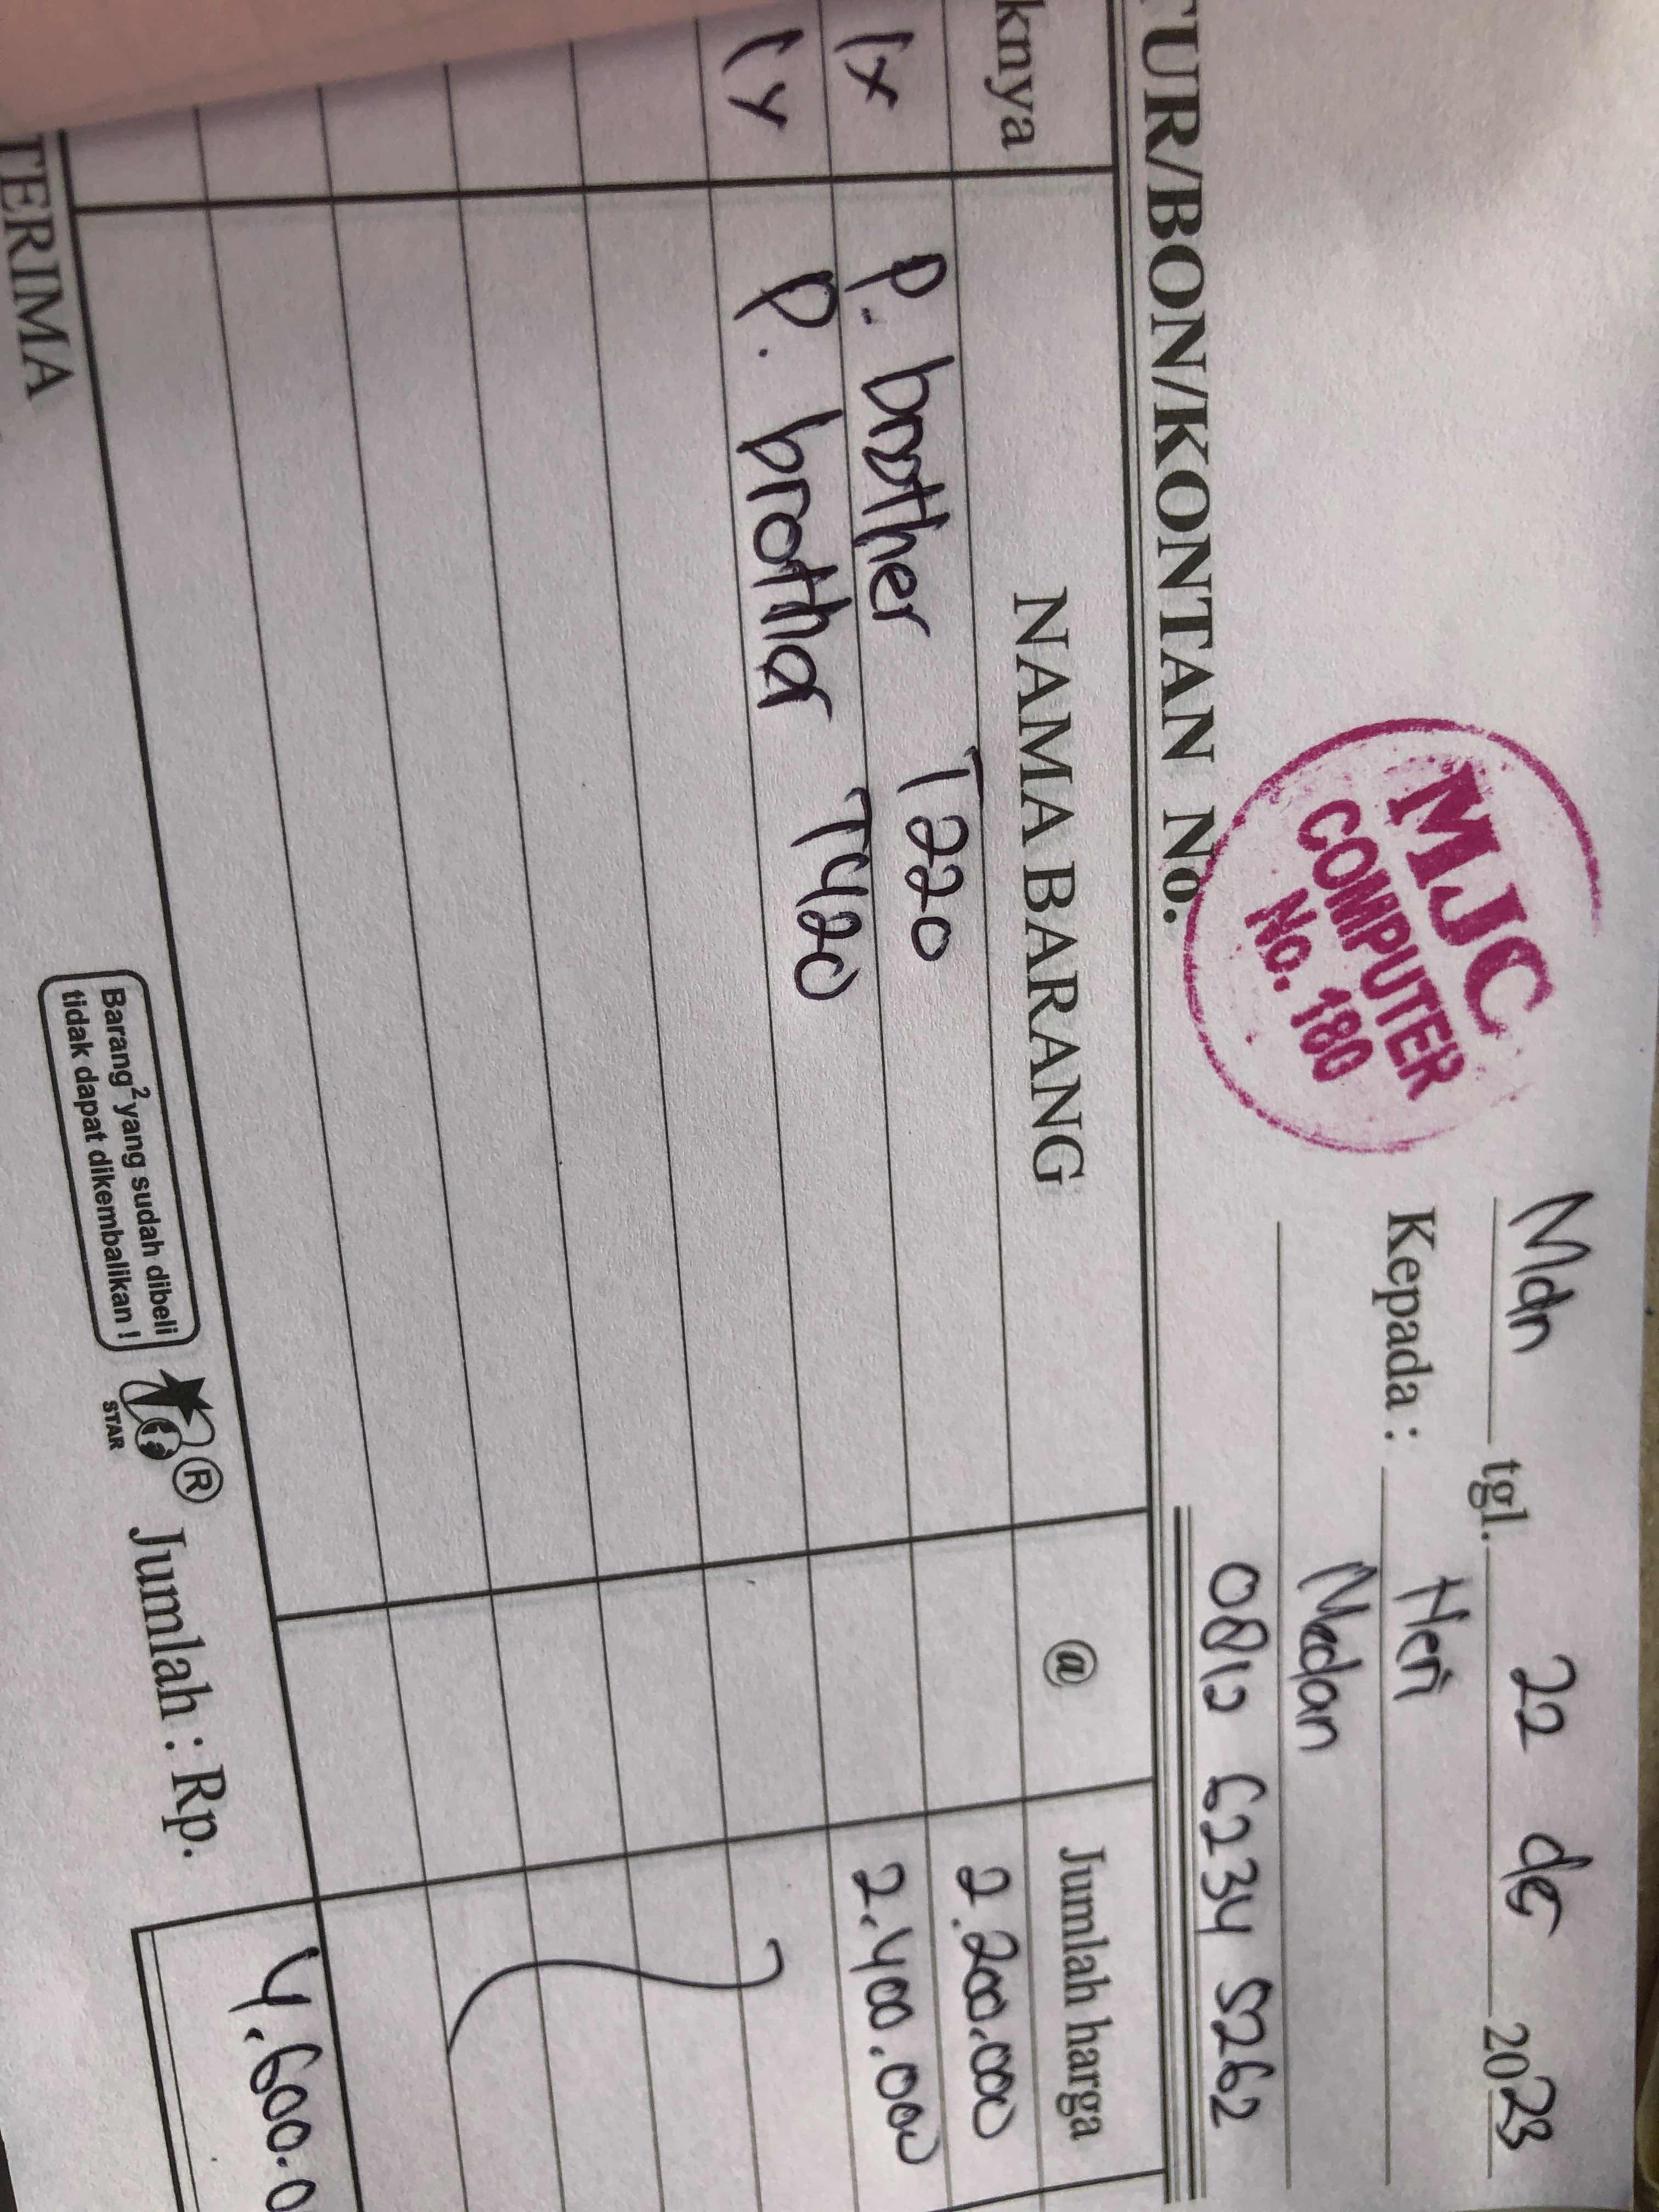 Mdn tgl. 22 des 2023
Kepada : Heri
Medan
0812 6234 5262
MJC
COMPUTER
No. 180
TUR/BON/KONTAN No.
knya NAMA BARANG @ Jumlah harga
1x P. brother T220 2.200.000
1x P. brother T420 2.400.000
Jumlah : Rp. 4.600.0
Barang² yang sudah dibeli
tidak dapat dikembalikan !
STAR
®
TERIMA